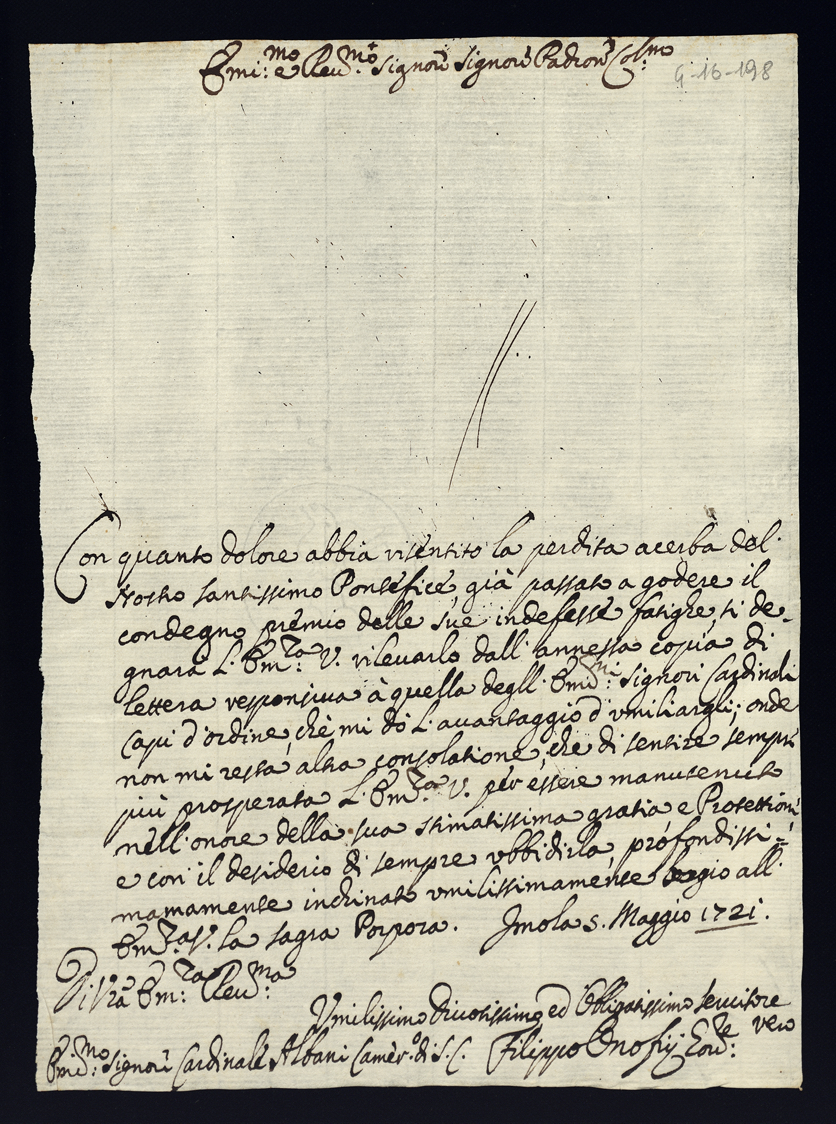 Emi:mo e Reu:mo Signore Signore Padrone Col:mo
G-16-198
Con quanto dolore abbia risentito la perdita acerba del
Nostro santissimo Pontefice, già passato a godere il
condegno premio delle sue indefesse fatighe, si de-
gnarà L'Em:za V. rilevarlo dall'annessa copia di
lettera responsiva à quella degl'Emi:ni Signori Cardinali
Capi d'ordine, che mi dò l'avantaggio d'umiliargli; onde
non mi resta altra consolatione, che di sentire sempre
più prosperata L'Em:za V. per essere manutenuto
nell'onore della sua stimatissima gratia e Protettione
e con il desiderio di sempre ubbidirla, profondissi=
mamamente inchinato umilissimamente bagio all'
Em:za V. la sagra Porpora. Imola 5. Maggio 1721.
Di Vra Em:za Reu:ma
Umilissimo Divotissimo ed Obligatissimo Servitore vero
Emi:mo Signore Cardinale Albani Camer:o di S. C. Filippo Onofrij